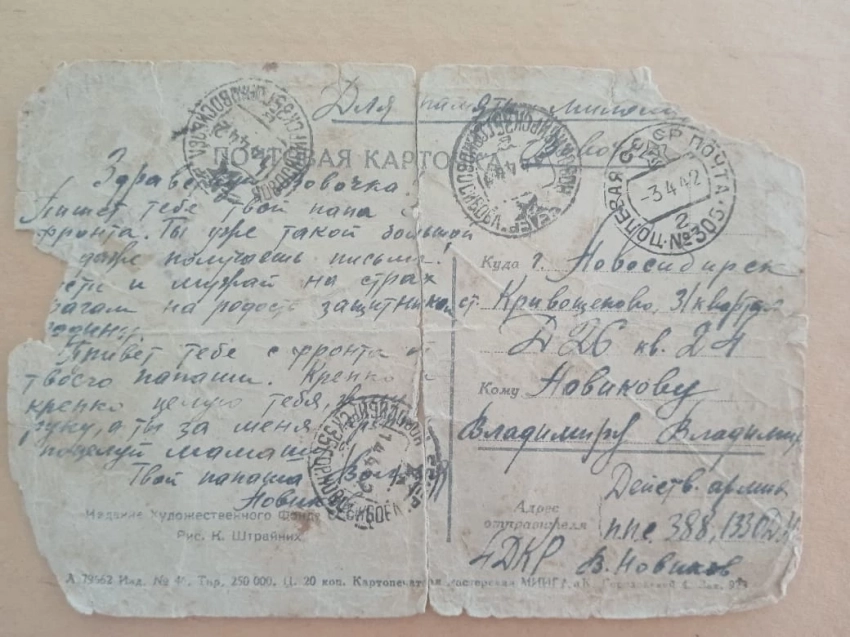 Для памяти
ПОЧТОВАЯ КАРТОЧКА
Здравствуй Вовочка!
Пишет тебе твой папа с
фронта. Ты уже такой большой
даже получаешь письма!
и мужай на страх
врагам на радость защитникам
родины.
Привет тебе с фронта от
твоего папаши. Крепко
крепко целую тебя,
руку, а ты за меня
поцелуй мамашу
Твой папаша
Новик
Издание Художественного Фонда
Рис. К. Штрайних
СССР ПОЛЕВАЯ ПОЧТА
-3.4.42
2
№ 305
Куда г. Новосибирск
ст. Кривощеково, 31 квартал
Д 26 кв. 24
Кому Новикову
Владимиру Владимир
Адрес
отправителя
Действ. армия
ппс 388, 1330
В. Новиков
Л 79662 Изд. № Тир. 250 000. Ц. 20 коп. Картопечатная мастерская